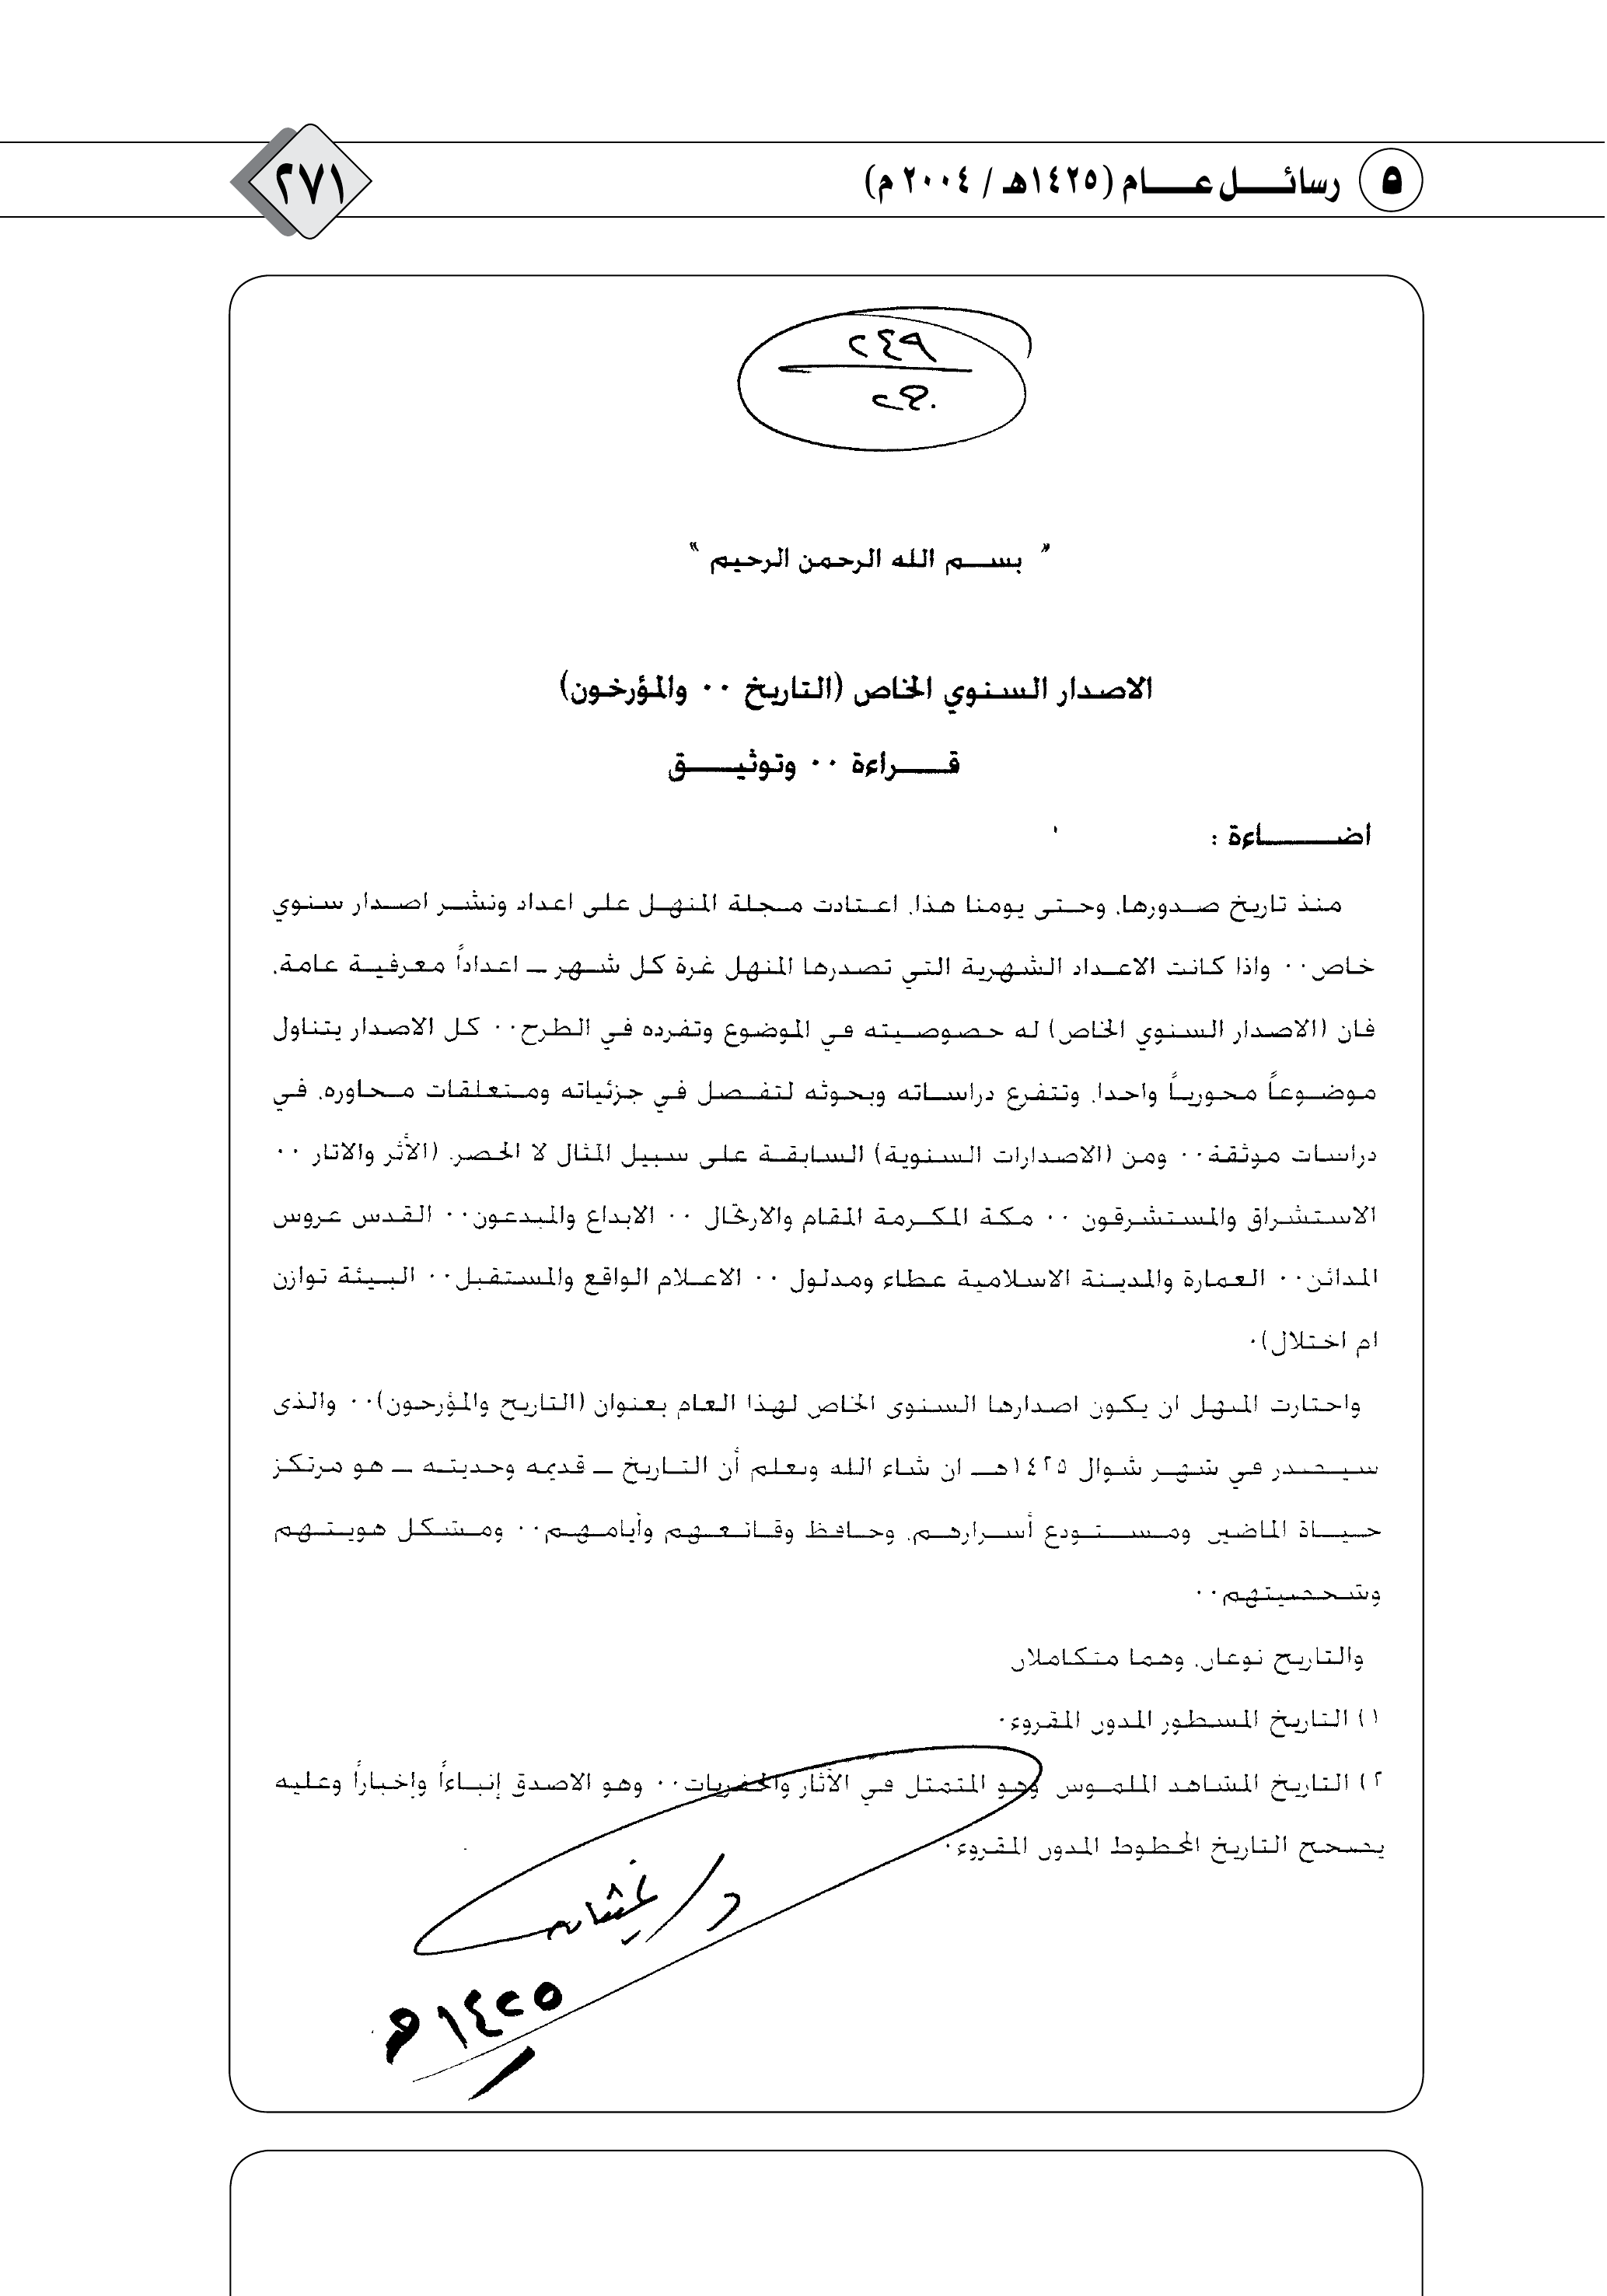 ٥ رسائـــل عـــــام (١٤٢٥هـ / ٢٠٠٤ م)
٢٧١
٢٤٩
" بســـم الله الرحمن الرحيم "
الاصدار السنوي الخاص (التاريخ ٠٠ والمؤرخون)
قـــــراءة ٠٠ وتوثيـــــق
اضـــــــاءة :
منذ تاريخ صدورها، وحتى يومنا هذا، اعتادت مجلة المنهل على اعداد ونشر اصدار سنوي
خاص٠٠ واذا كانت الاعداد الشهرية التي تصدرها المنهل غرة كل شهر ــ اعداداً معرفية عامة،
فان (الاصدار السنوي الخاص) له خصوصيته في الموضوع وتفرده في الطرح٠٠ كل الاصدار يتناول
موضوعاً محورياً واحدا، وتتفرع دراساته وبحوثه لتفصل في جزئياته ومتعلقات محاوره، في
دراسات موثقة٠٠ ومن (الاصدارات السنوية) السابقة على سبيل المثال لا الحصر، (الأثر والاثار ٠٠
الاستشراق والمستشرقون ٠٠ مكة المكرمة المقام والارتحال ٠٠ الابداع والمبدعون٠٠ القدس عروس
المدائن٠٠ العمارة والمدينة الاسلامية عطاء ومدلول ٠٠ الاعلام الواقع والمستقبل٠٠ البيئة توازن
ام اختلال)٠
واختارت المنهل ان يكون اصدارها السنوى الخاص لهذا العام بعنوان (التاريخ والمؤرخون)٠٠ والذى
سيصدر في شهر شوال ١٤٢٥هـ ان شاء الله ونعلم أن التاريخ ــ قديمه وحديثه ــ هو مرتكز
حياة الماضين ومستودع أسرارهم، وحافظ وقائعهم وأيامهم٠٠ ومشكل هويتهم
وشخصيتهم٠٠
والتاريخ نوعان، وهما متكاملان
١) التاريخ المسطور المدون المقروء٠
٢) التاريخ المشاهد الملموس وهو المتمثل في الآثار والحفريات٠٠ وهو الاصدق إنباءاً وإخباراً وعليه
يصحح التاريخ المخطوط المدون المقروء٠
د/ غيثان
١٤٢٥هـ